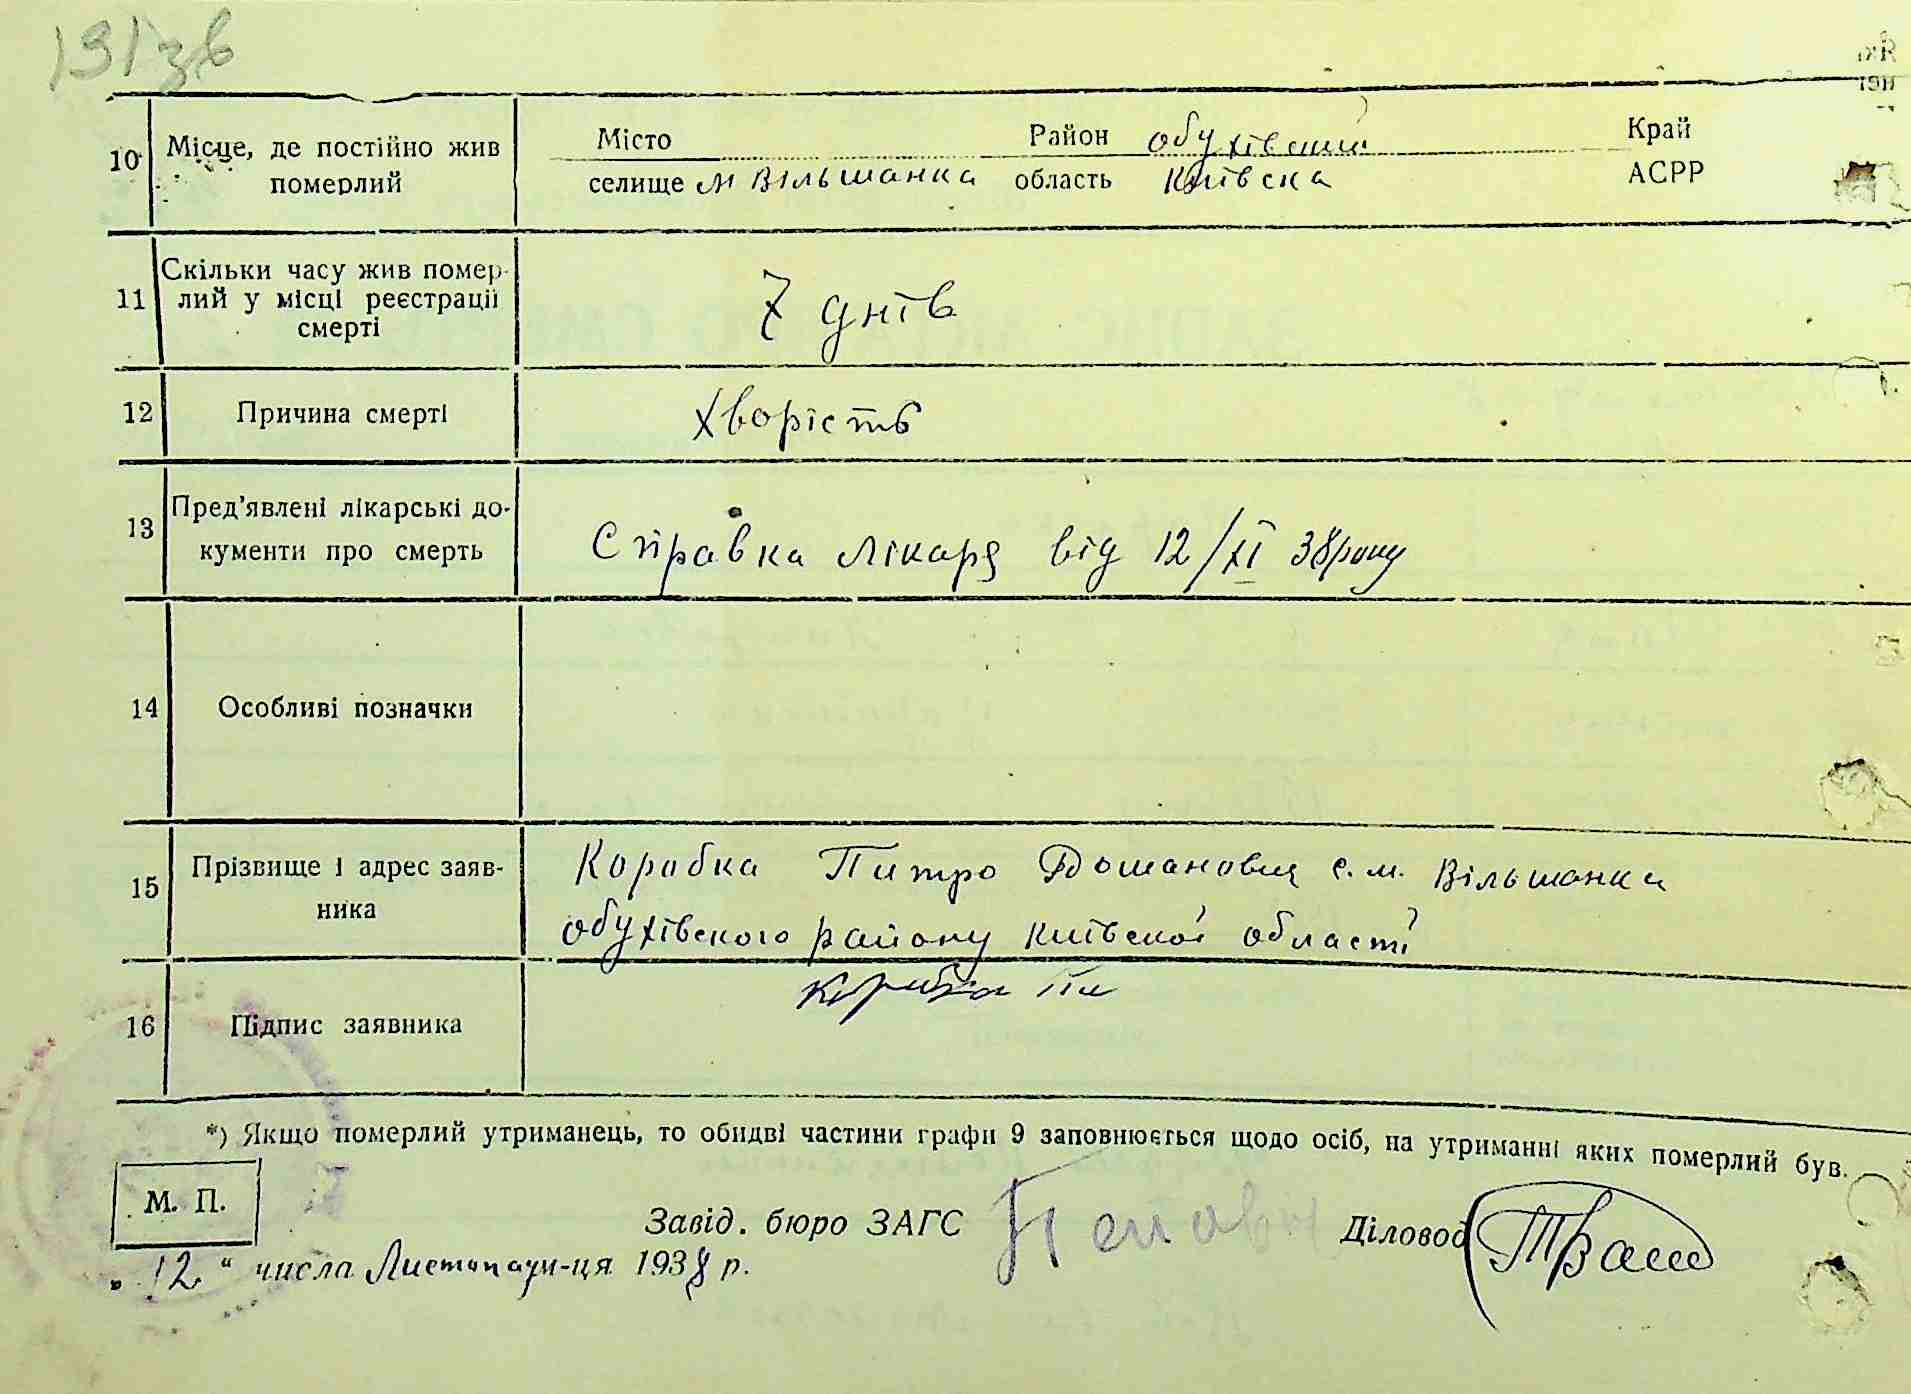 131зв
10 Місце, де постійно жив померлий
Місто Район обухівський Край
селище М Вільшанка область Київска АСРР
11 Скільки часу жив помер-
лий у місці реєстрації
смерті
7 днів
12 Причина смерті Хворість
13 Пред'явлені лікарські до-
кументи про смерть
Справка лікаря від 12/XI 38 року
14 Особливі позначки
15 Прізвище і адрес заяв-
ника
Коробка Питро с. м. Вільшанка
обухівського району київської області
16 Підпис заявника
Коробка Пи
*) Якщо померлий утриманець, то обидві частини графи 9 заповнюється щодо осіб, на утриманні яких померлий був.
М. П.
Завід. бюро ЗАГС Діловод
„12“ числа Листопада-ця 1938 р.